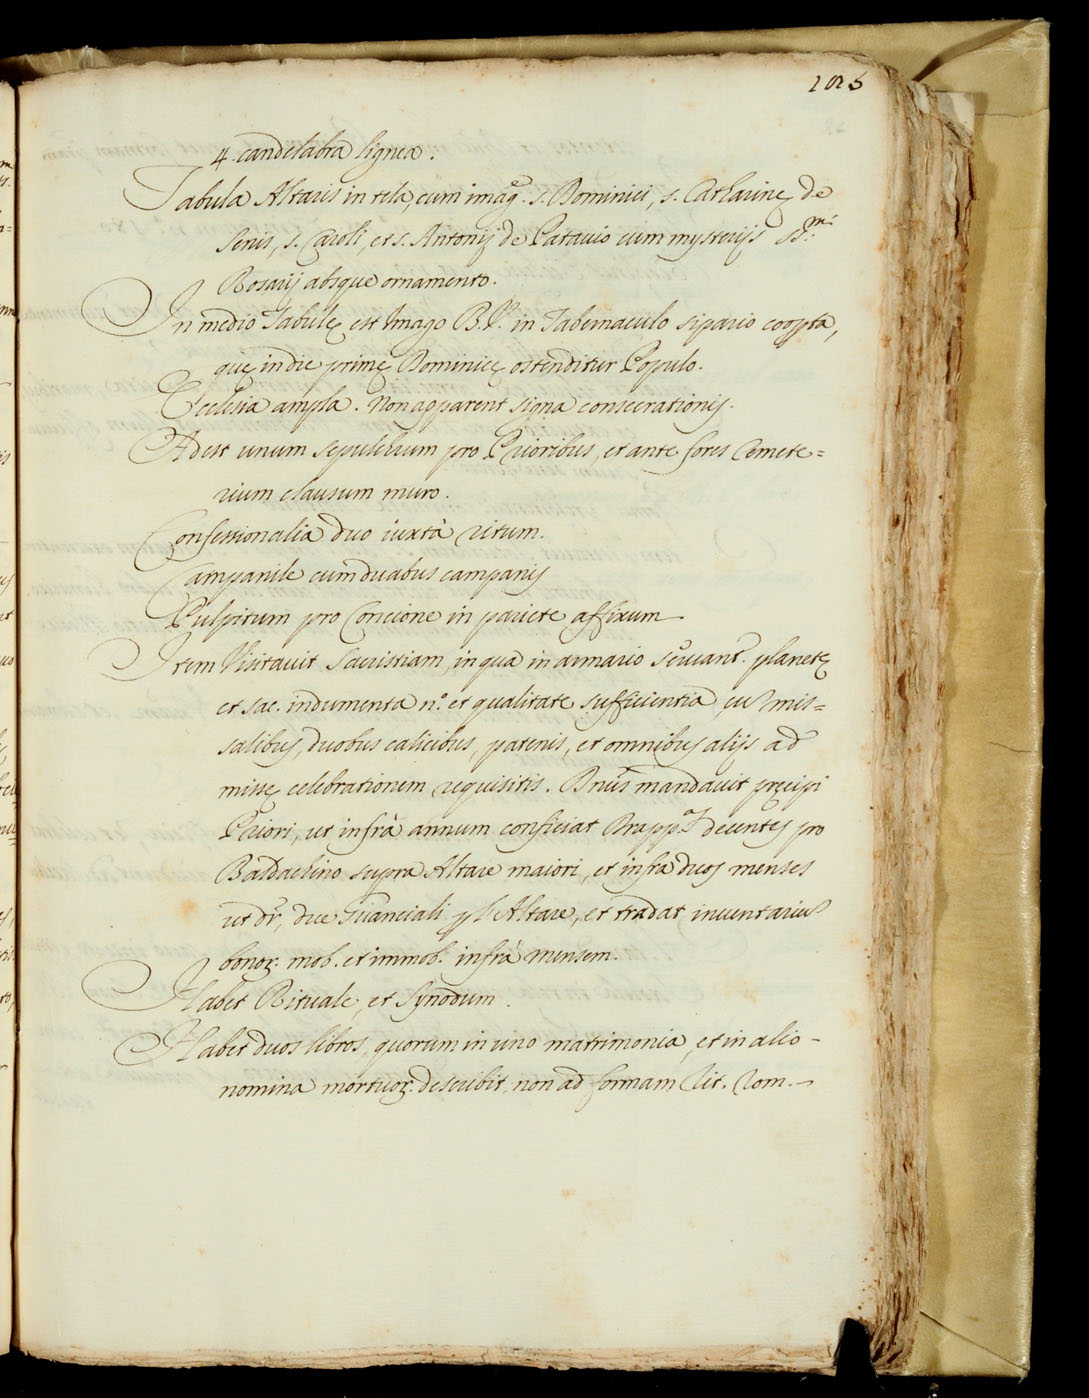 1025
4. candelabra lignea.
Tabula Altaris in tela, cum imag.e s. Dominici, s. Catharinę de
Senis, s. Caroli, et s. Antonij de Patauio cum mysterijs SS.mi
Rosarij absque ornamento.
In medio Tabulę est Imago B.V. in Tabernaculo sipario cooperta,
quę in die primę Dominicę ostenditur Populo.
Ecclesia ampla. Non apparent signa consecrationis.
Adest unum sepulchrum pro Prioribus, et ante fores Cemete=
rium clausum muro.
Confessionalia duo iuxtà ritum.
Campanile cum duabus campanis
Pulpitum pro Concione in pariete affixum
Item Visitauit Sacristiam, in qua in armario seruant. planetę
et sac. indumenta n.o et qualitate sufficientia, cu mis=
salibus, duobus calicibus, patenis, et omnibus alijs ad
missę celebrationem requisitis. Dnus mandauit pręcipi
Priori, ut infrà annum conficiat Drapp. decentes pro
Baldachino supra Altare maiori, et infra duos menses
ut dr, due Altare, et tradat inuentariu
bonor. mob. et immob. infrà mensem.
Habet Rituale, et Synodum.
Habet duos libros, quorum in uno matrimonia, et in alio
nomina mortuor. describit, non ad formam Rit. Rom.